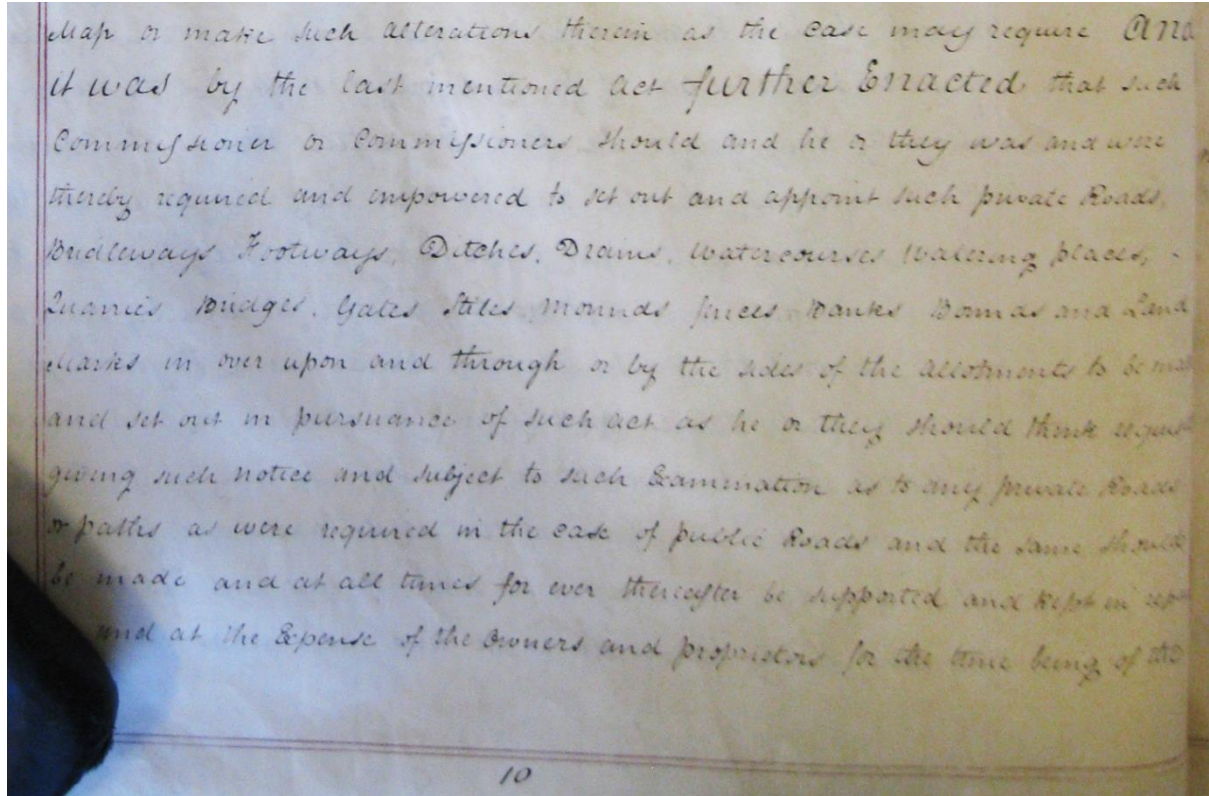 Map or make such alterations therein as the case may require And
it was by the last mentioned act further Enacted that such
Commissioner or Commissioners should and he or they was and were
thereby required and empowered to set out and appoint such private Roads,
Bridleways Footways, Ditches, Drains, Watercourses Watering places, -
Quarries Bridges, Gates Stiles Mounds fences Banks Bounds and Land
Marks in over upon and through or by the sides of the allotments to be
and set out in pursuance of such act as he or they should think
giving such notice and subject to such Examination as to any private Roads
or paths as were required in the case of public Roads and the same should
be made and at all times for ever thereafter be supported and kept in
and at the Expense of the Owners and proprietors for the time being of the
10